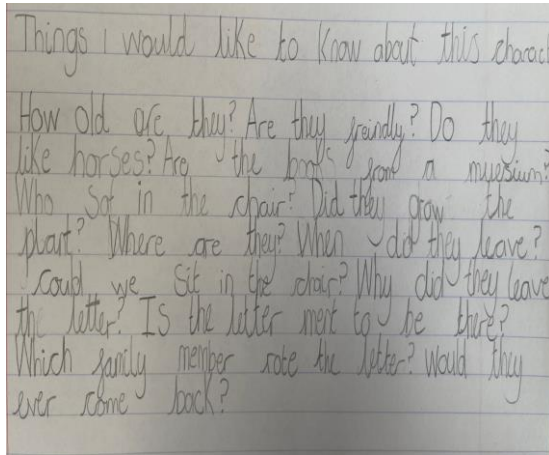 Things I would like to know about this charac
How old are they? Are they freindly? Do they
like horses? Are the books from a muesium?
Who sat in the chair? Did they grow the
plant? Where are they? When did they leave?
Could we sit in the chair? Why did they leave
the letter? Is the letter ment to be there?
Which family member rote the letter? Would they
ever come back?